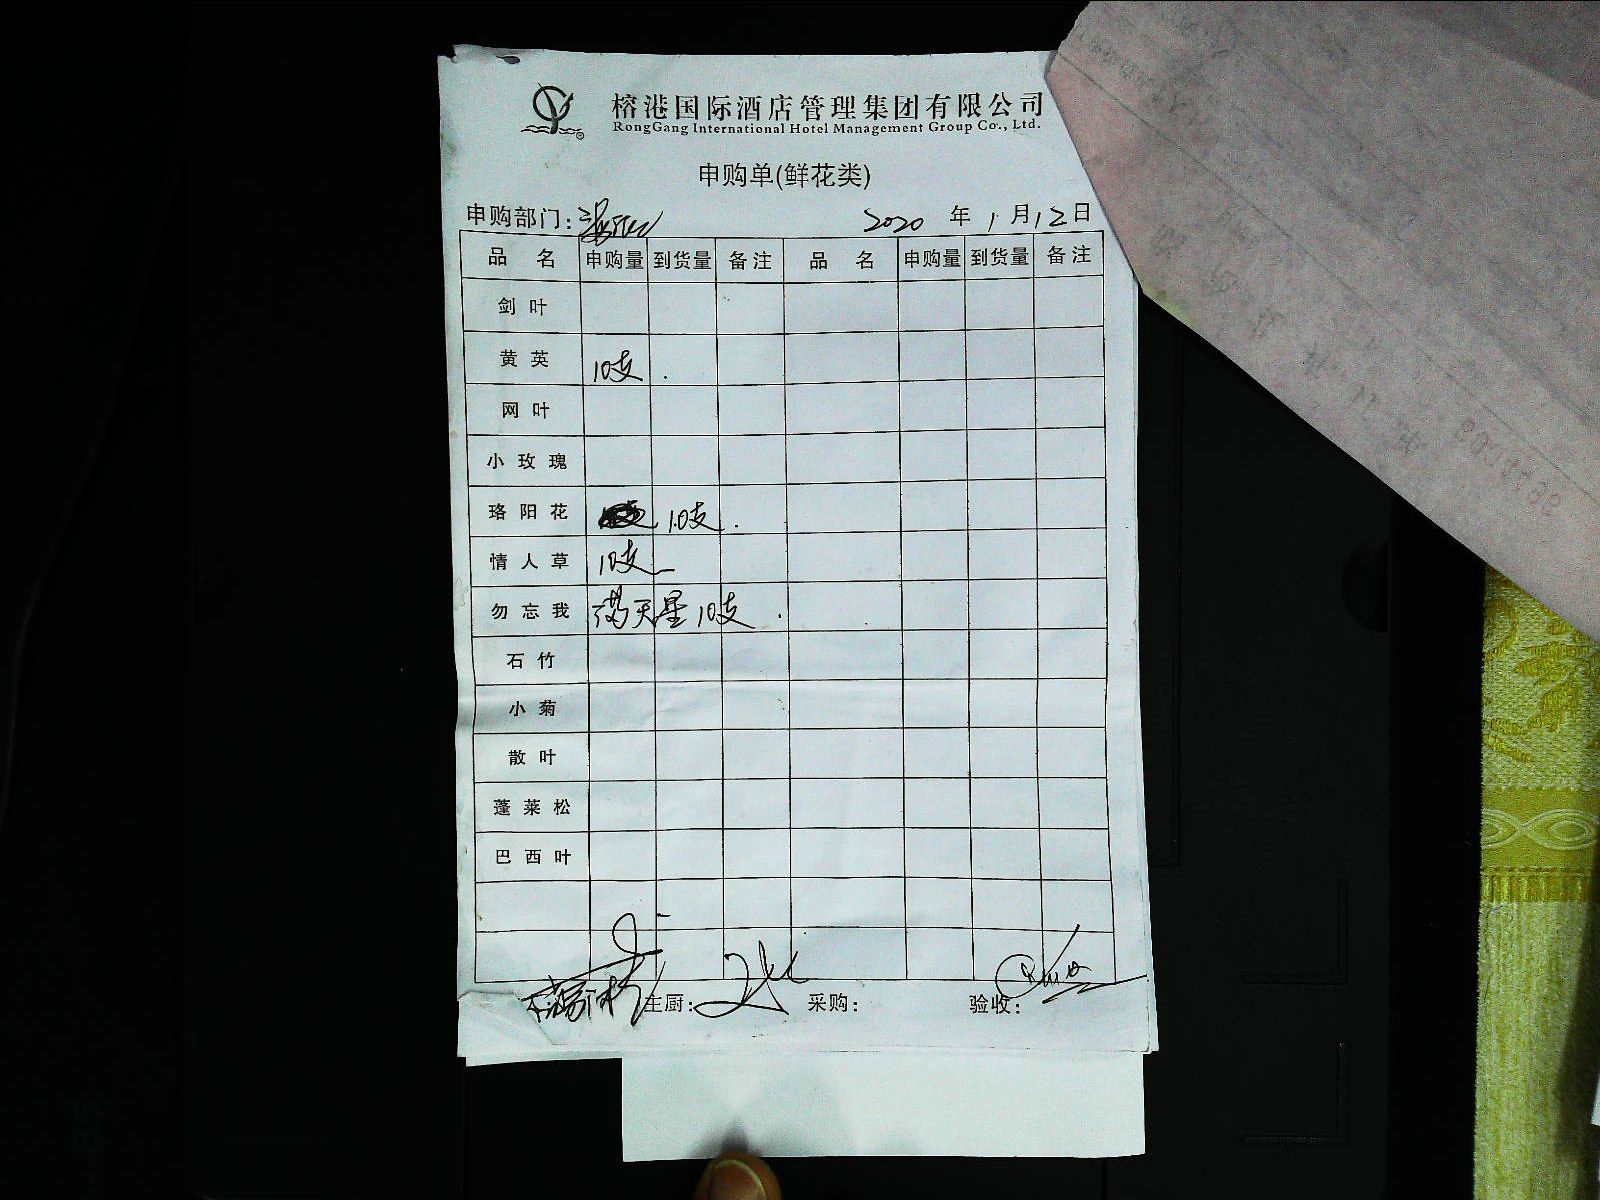 榕港国际酒店管理集团有限公司
RongGang International Hotel Management Group Co., Ltd.
申购单(鲜花类)
申购部门: 2020 年 1 月 12 日
品 名 申购量 到货量 备注 品 名 申购量 到货量 备注
剑叶
黄英 10支
网叶
小玫瑰
珞阳花 10支
情人草 10支
勿忘我 满天星 10支
石竹
小菊
散叶
蓬莱松
巴西叶
主厨: 采购: 验收: